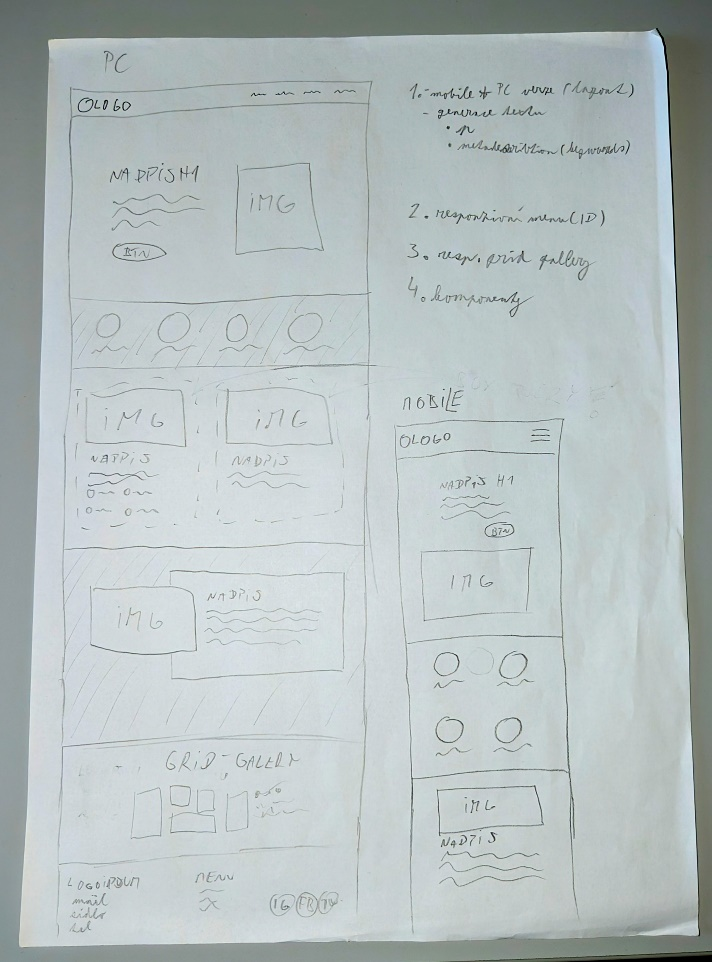 PC
OLOGO
NADPIS H1
IMG
BTN
IMG
IMG
NADPIS
NADPIS
IMG
NADPIS
GRID - GALERY
LOGOIPSUM
mail
sídlo
tel
MENU
IG FB TW
1. - mobile + PC verze (layout)
- generace textu
• p
• metadescribtion (keywords)
2. responzivní menu (ID)
3. resp. grid gallery
4. komponenty
MOBILE
OLOGO
NADPIS H1
BTN
IMG
IMG
NADPIS